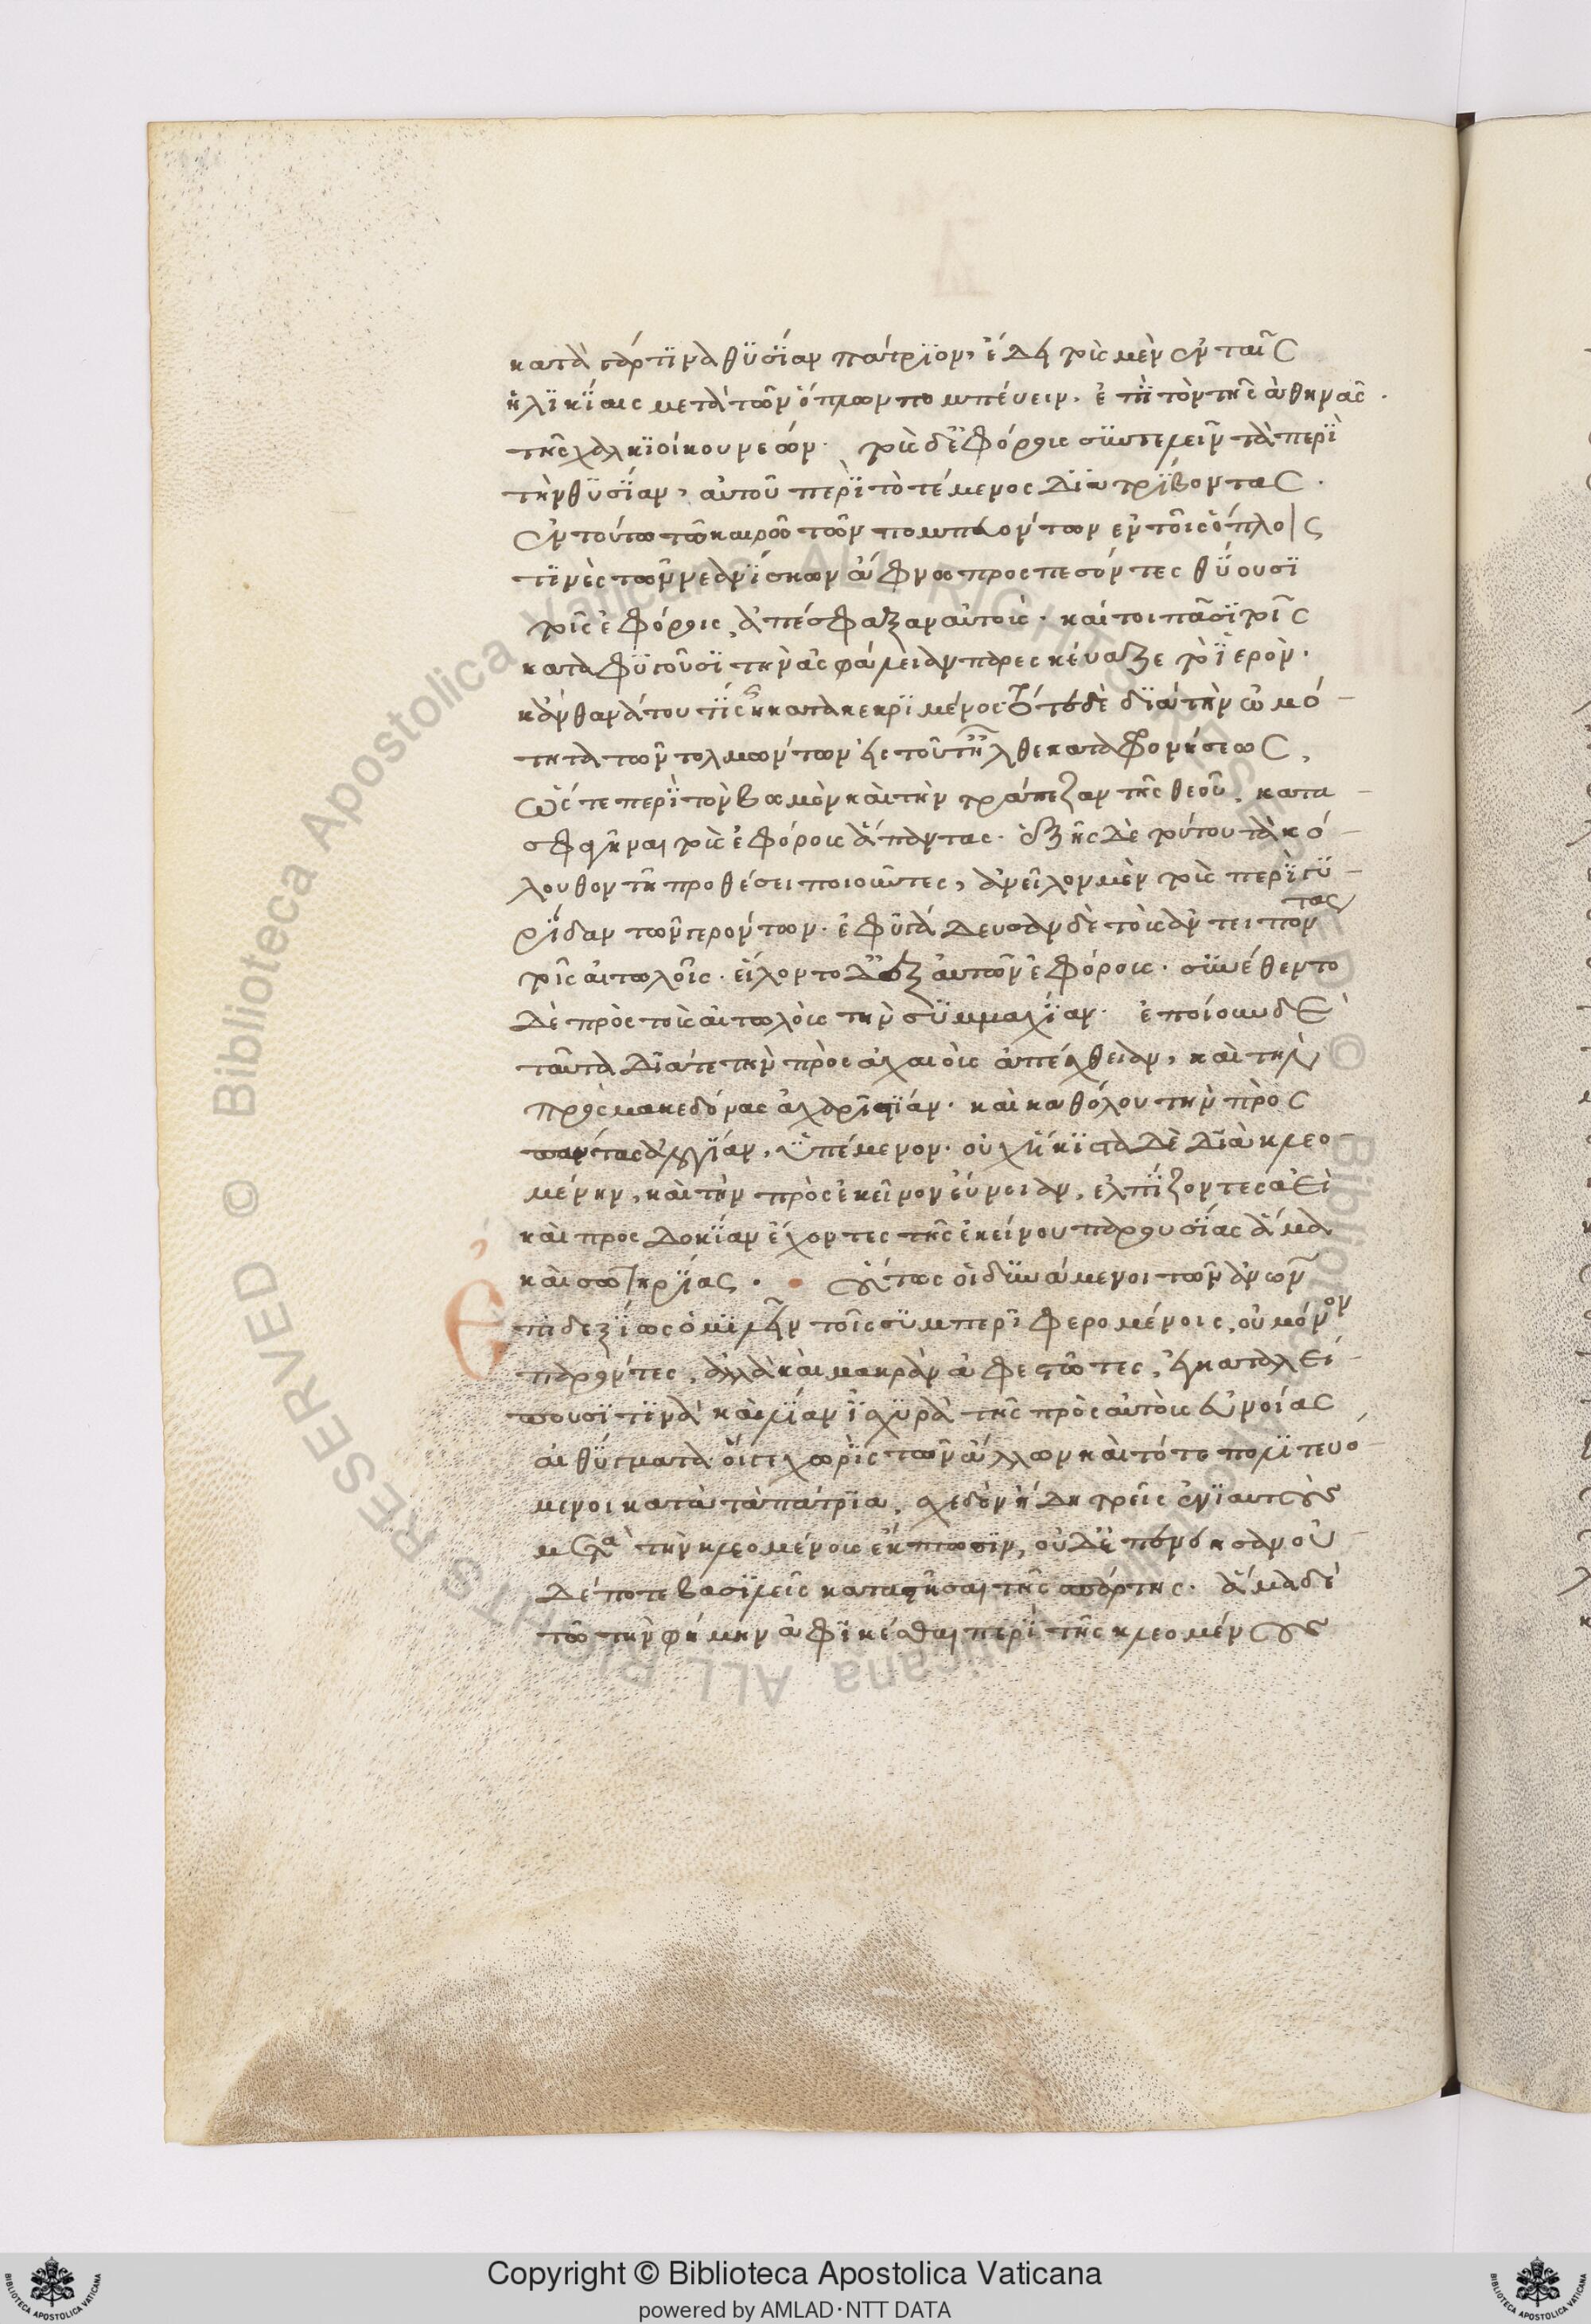 κατὰ γάρ τϊνα θϋσίαν πάτρϊον, ἔδει τοὺς μὲν ἐν ταῖς
ἡλϊκίαις μετὰ τῶν ὅπλων πομπεύειν· ἐπὶ τὸν τῆς ἀθηνᾶς
τῆς χαλκϊοίκου νεών· τοὺς δ' ἐφόρους σϋντελεῖν τὰ περὶ
τὴν θϋσίαν, αὐτοῦ περὶ τὸ τέμενος διατρίβοντας·
ἐν τούτω τῶ καιρῶ τῶν πομπευόντων ἐν τοῖς ὅπλοις
τϊνὲς τῶν νεανίσκων ἄφνω προσπεσόντες θύουσϊ
τοῖς ἐφόροις, ἀπέσφαξαν αὐτούς· καίτοι πᾶσϊ τοῖς
καταφϋγοῦσϊ τὴν ἀσφάλειαν παρεσκεύαζε τὸ ἱερὸν·
κἂν θανάτου τὶς ἦν κατακεκρϊμένος· τότε δὲ δϊὰ τὴν ὠμό-
τητα τῶν τολμώντων εἰς τοῦτ' ἦλθε καταφρονήσεως,
ὥστε περὶ τὸν βωμὸν καὶ τὴν τράπεζαν τῆς θεοῦ, κατα-
σφαγῆναι τοὺς ἐφόρους ἅπαντας· ἑξῆς δὲ τούτου τἀκό-
λουθον τῆ προθέσει ποιοῦντες, ἀνεῖλον μὲν τοὺς περὶ γυ-
ρίδαν τῶν γερόντων· ἐφυγάδευσαν δὲ τοὺς ἀντειπόντας
τοῖς αἰτωλοῖς· εἵλοντο δ' ἐξ αὑτῶν ἐφόρους· σϋνέθεντο
δὲ πρὸς τοὺς αἰτωλοὺς τὴν σϋμμαχίαν· ἐποίουν δὲ
ταῦτα δϊά τε τὴν πρὸς ἀχαιοὺς ἀπέχθειαν, καὶ τὴν
πρὸς μακεδόνας ἀχαριστίαν· καὶ καθόλου τὴν πρὸς
πάντας ἀλογίαν, ὑπέμενον· οὐχ ἥκιστα δὲ δϊὰ κλεο-
μένην, καὶ τὴν πρὸς ἐκεῖνον εὔνοιαν, ἐλπίζοντες ἀεὶ
καὶ προσδοκίαν ἔχοντες τῆς ἐκείνου παρουσίας ἅμα
καὶ σωτηρίας· οὕτως οἱ δϋνάμενοι τῶν ἀνων
ἐπιδεξίως ὁμϊλεῖν τοῖς σϋμπερϊφερομένοις, οὐ μόνον
παρόντες, ἀλλὰ καὶ μακρὰν ἀφεστῶτες, ἐγκαταλεί-
πουσϊ τϊνὰ καὶ λίαν ἰσχϋρὰ τῆς πρὸς αὐτοὺς εὐνοίας
αἰθύγματα οἵγε χωρὶς τῶν ἄλλων καὶ τότε πολϊτευό-
μενοι κατὰ τὰ πάτρϊα, σχεδὸν ἤδη τρεῖς ἐνϊαυτοὺς
μετὰ τὴν κλεομένους ἔκπτωσϊν, οὐδ' ἐπενόησαν οὐ-
δέποτε βασϊλεῖς καταστῆσαι τῆς σπάρτης· ἅμα δὲ
τῶ τὴν φήμην ἀφϊκέσθαι περὶ τῆς κλεομένους